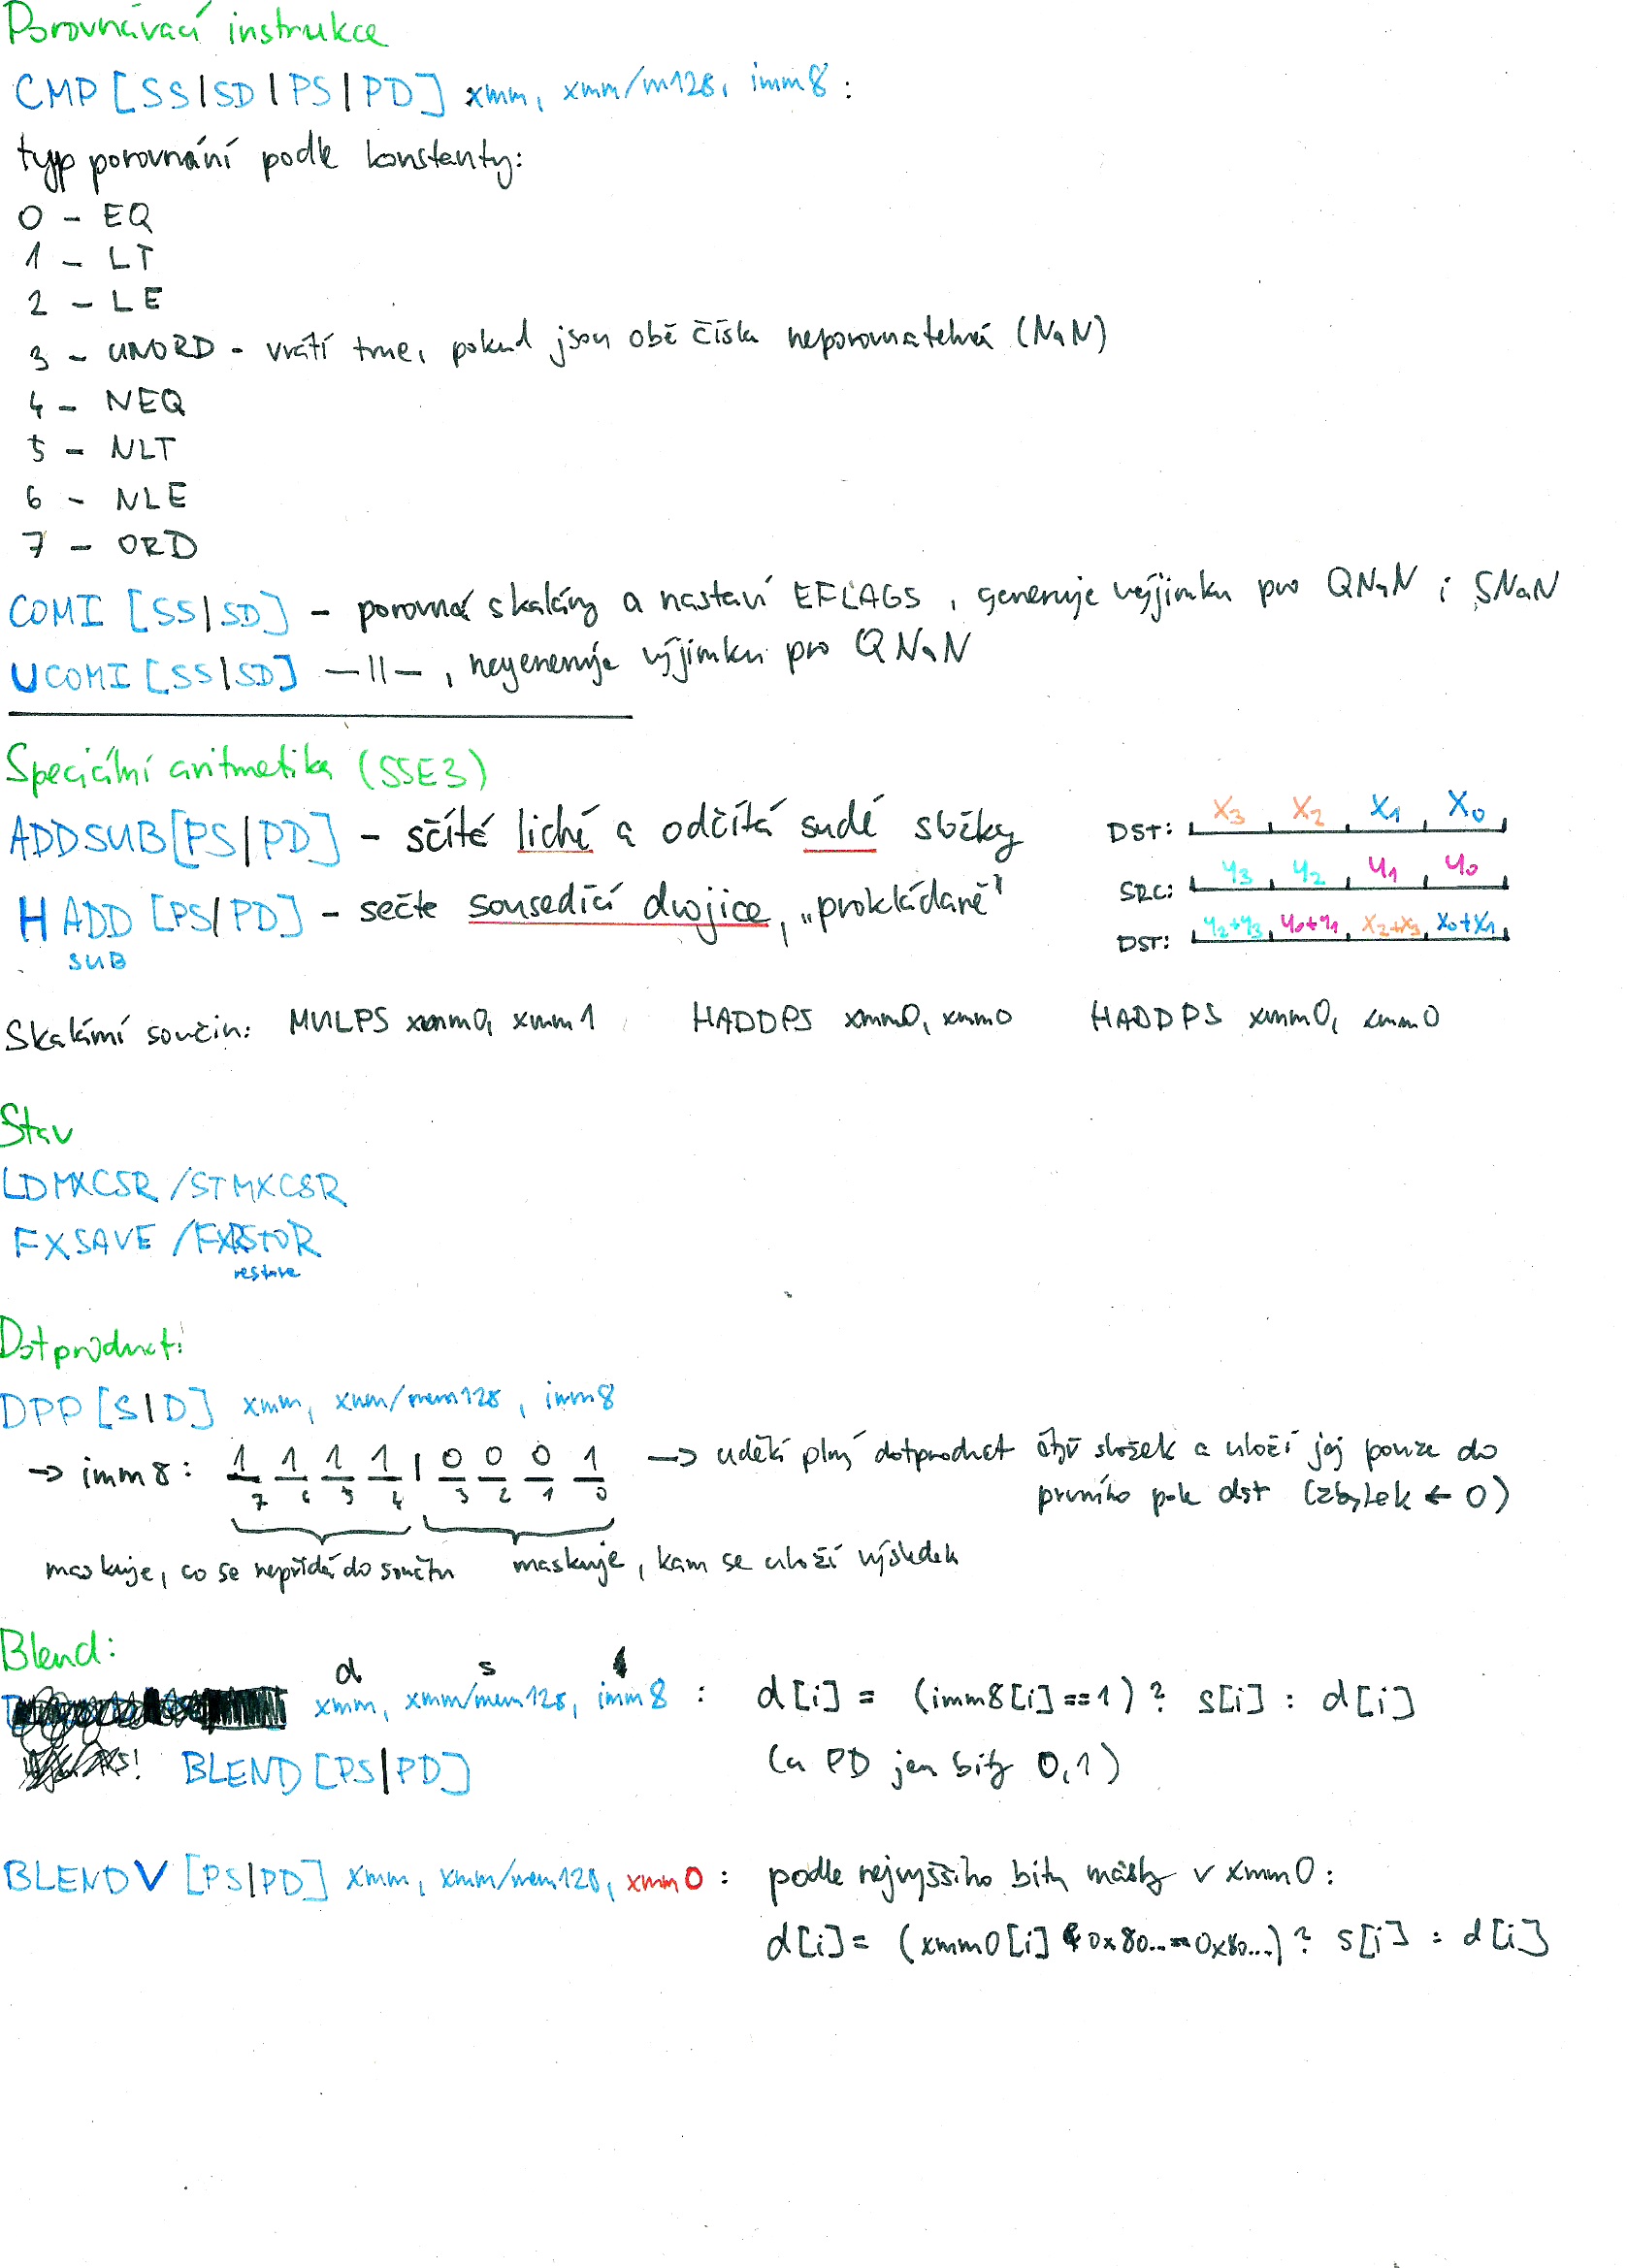 Porovnávací instrukce
CMP [SS|SD|PS|PD] xmm, xmm/m128, imm8 :
typ porovnání podle konstanty:
0 - EQ
1 - LT
2 - LE
3 - UNORD - vrátí true, pokud jsou obě čísla neporovnatelná (NaN)
4 - NEQ
5 - NLT
6 - NLE
7 - ORD
COMI [SS|SD] - porovná skaláry a nastaví EFLAGS, generuje výjimku pro QNaN i SNaN
UCOMI [SS|SD] —||— , negeneruje výjimku pro QNaN
Speciální aritmetika (SSE3)
ADDSUB[PS|PD] - sčítá liché a odčítá sudé složky
HADD [PS/PD] - sečte sousedící dvojice, „prokládaně"
SUB
DST: X3 X2 X1 X0
SRC: y3 y2 y1 y0
DST: y2+y3 y0+y1 x2+x3 x0+x1
Skalární součin: MULPS xmm0, xmm1 HADDPS xmm0, xmm0 HADDPS xmm0, xmm0
Stav
LDMXCSR /STMXCSR
FXSAVE /FXRSTOR
restore
Dotproduct:
DPP [S|D] xmm, xmm/mem128, imm8
→ imm8: 1 1 1 1 | 0 0 0 1 → udělá plný dotproduct čtyř složek a uloží jej pouze do
7 6 5 4 3 2 1 0 prvního pole dst (zbytek ← 0)
maskuje, co se nepřidá do součtu maskuje, kam se uloží výsledek
Blend:
d s
xmm, xmm/mem128, imm8 : d[i] = (imm8[i]==1) ? s[i] : d[i]
BLEND [PS|PD] (u PD jen bity 0,1)
BLENDV [PS|PD] xmm, xmm/mem128, xmm0 : podle nejvyššího bitu masky v xmm0:
d[i]= (xmm0[i] & 0x80..==0x80...) ? s[i] : d[i]